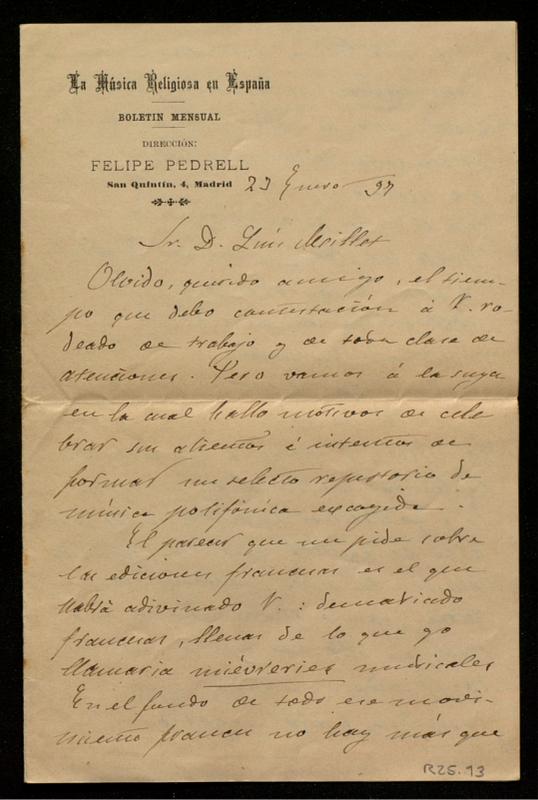 La Música Religiosa en España
BOLETIN MENSUAL
DIRECCIÓN:
FELIPE PEDRELL
San Quintín, 4, Madrid
23 Enero 97
Sr. D. Luís Millet
Olvido, querido amigo, el tiem-
po que debo contestación á V. ro-
deado de trabajo y de toda clase de
atenciones. Pero vamos á la suya
en la cual hallo motivos de cele
brar sus alientos é intentos de
formar un selecto repertorio de
música polifónica escogida.
El parecer que me pide sobre
las ediciones francesas es el que
habrá adivinado V.: demasiado
francesas, llenas de lo que yo
llamaria mièvreries musicales
En el fondo de todo ese movi-
miento frances no hay más que
R25.93